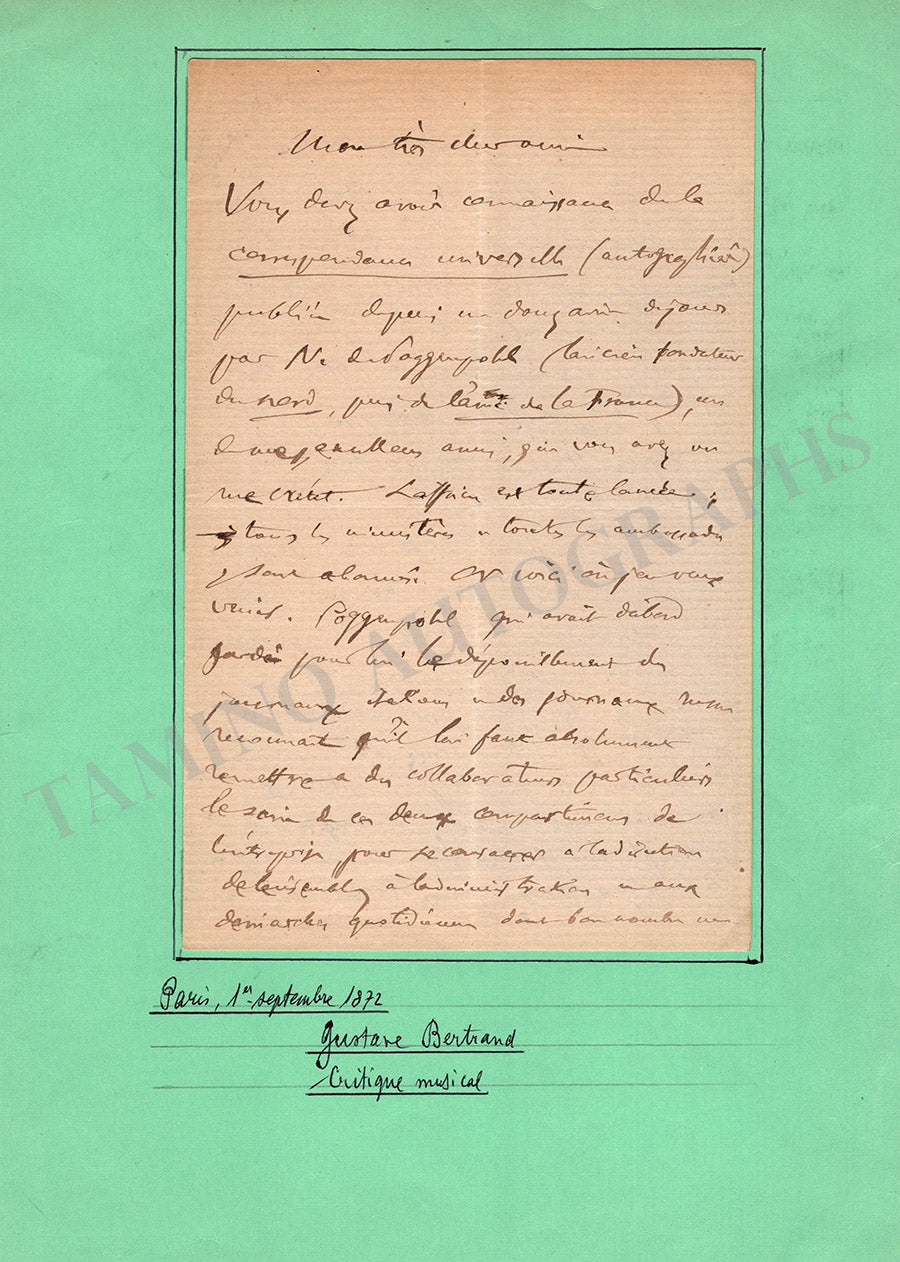 Mon très cher ami
Vous devez avoir connaissance de la
correspondance universelle (autographiée)
publiée depuis une douzaine de jours
par Mr de Poggenpohl (l'ancien fondateur
du Nord, puis de l'ami de la France), un
de mes meilleurs amis, que vous avez vu
rue Crétet. L'affaire est toute lancée ;
tous les ministères et toutes les ambassades
y sont abonnés. Or voici où j'en veux
venir. Poggenpohl qui avait d'abord
gardé pour lui le dépouillement des
journaux italiens et des journaux russes
reconnait qu'il lui faut absolument
remettre à des collaborateurs particuliers
le soin de ces deux compartimens de
l'entreprise, pour se consacrer à la direction
de l'ensemble, à l'administration et aux
démarches quotidiennes dont bon nombre
Paris, 1er septembre 1872
Gustave Bertrand
Critique musical
TAMINO AUTOGRAPHS